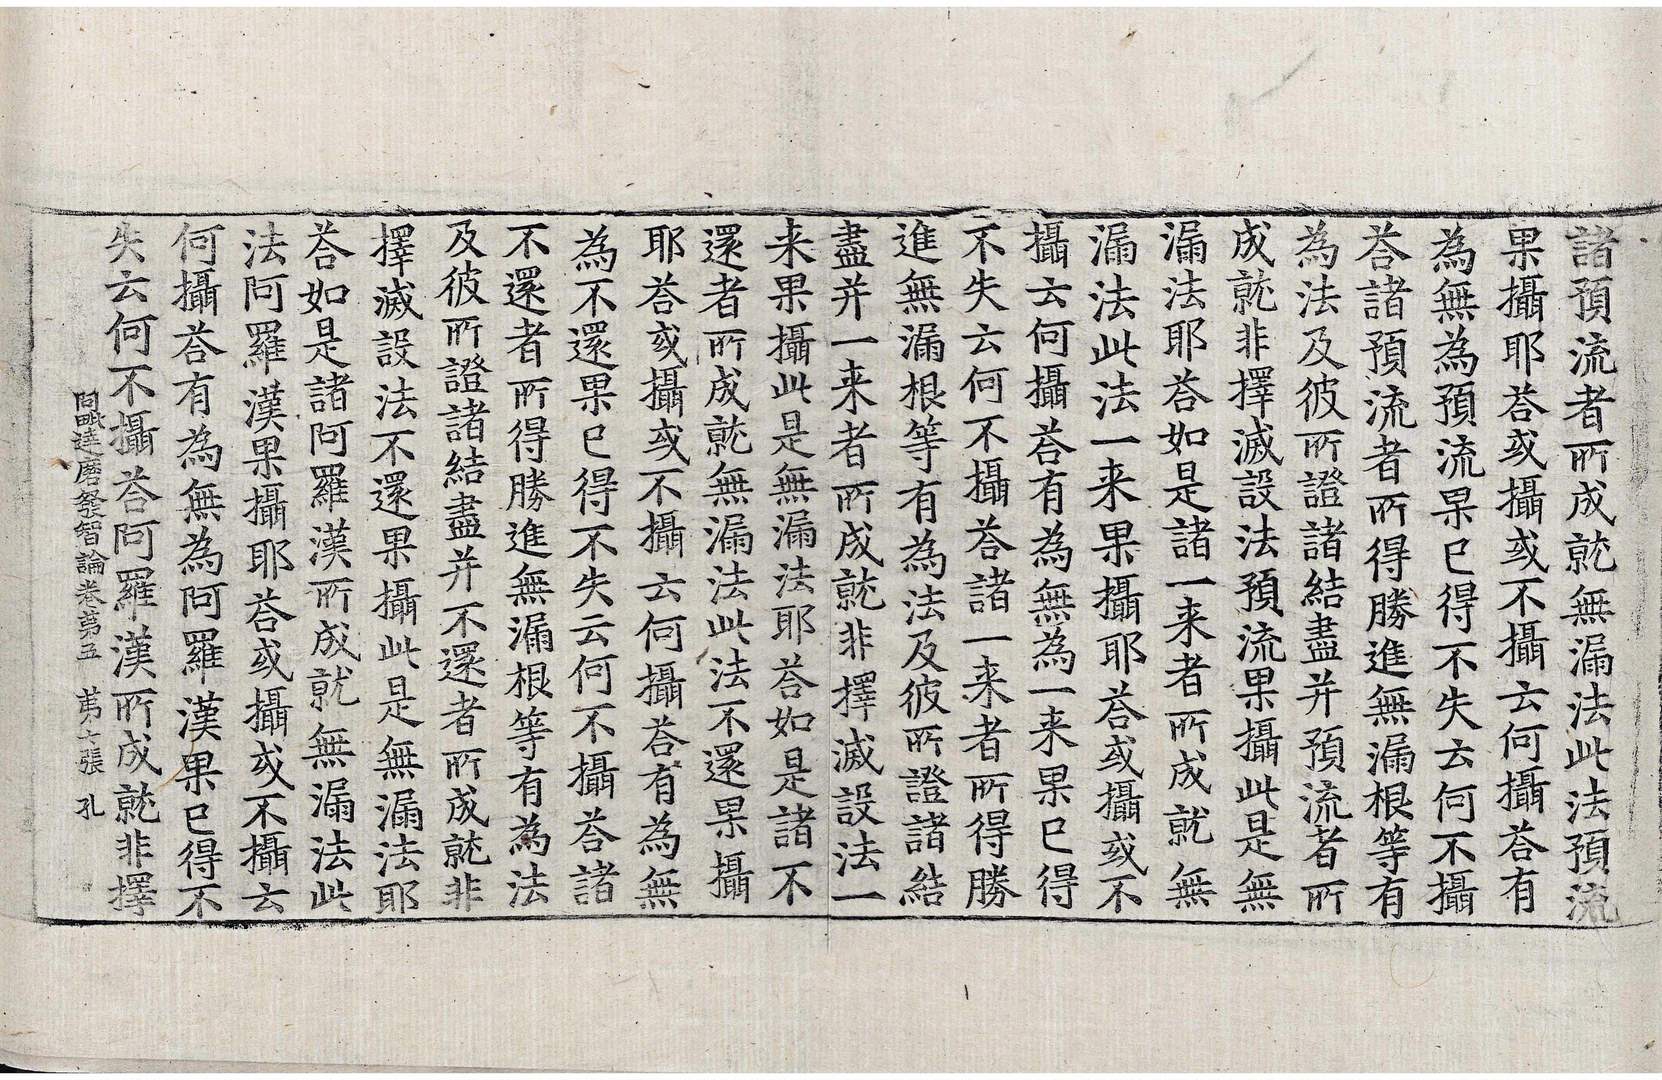 諸預流者所成就無漏法此法預流
果攝耶荅或攝或不攝云何攝荅有
為無為預流果已得不失云何不攝
荅諸預流者所得勝進無漏根等有
為法及彼所證諸結盡并預流者所
成就非擇滅設法預流果攝此是無
漏法耶荅如是諸一来者所成就無
漏法此法一来果攝耶荅或攝或不
攝云何攝荅有為無為一来果已得
不失云何不攝荅諸一来者所得勝
進無漏根等有為法及彼所證諸結
盡并一来者所成就非擇滅設法一
来果攝此是無漏法耶荅如是諸不
還者所成就無漏法此法不還果攝
耶荅或攝或不攝云何攝荅有為無
為不還果已得不失云何不攝荅諸
不還者所得勝進無漏根等有為法
及彼所證諸結盡并不還者所成就非
擇滅設法不還果攝此是無漏法耶
荅如是諸阿羅漢所成就無漏法此
法阿羅漢果攝耶荅或攝或不攝云
何攝荅有為無為阿羅漢果已得不
失云何不攝荅阿羅漢所成就非擇
阿毗達磨發智論卷第五 苐七張 孔